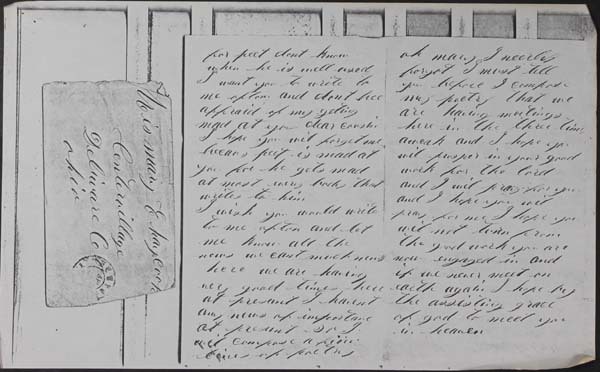 Miss Mary E haycock
Centervillage
Deliware Co
ohio
for peet dont know
when he is well used
I want you to write to
me ofton and dont bee
affraid of my geting
mad at you dear Cousin
I hope you wil forget me
becaus peet is mad at
you for he gets mad
at most every body that
writes to him
I wish you would write
to me ofton and let
me know all the
news we cant much news
here we are having
very good times here
at present I havent
any news of importanc
at present So I
wil Compose a few
lines of poetry
oh mary I nearley
forgot I must tell
you before I Compose
my poetry that we
are having meetings
here in the three times
aweak and I hope you
wil prosper in your good
work for the lord
and I wil pray for you
and I hope you wil
pray for me I hope you
wil not turn from
the good work you are
now engaged in and
if we never meet on
earth again I hope by
the assisting grace
of god to meet you
in heaven